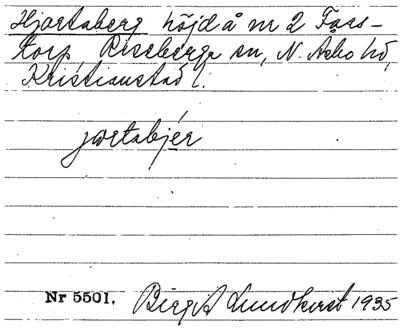 Hjortaberg höjd å nr 2 Faas-
torp Riseberga sn, N. Asbo hd,
Kristianstad l.
jortabjér
Nr 5501. Birgit Lundkvist 1935